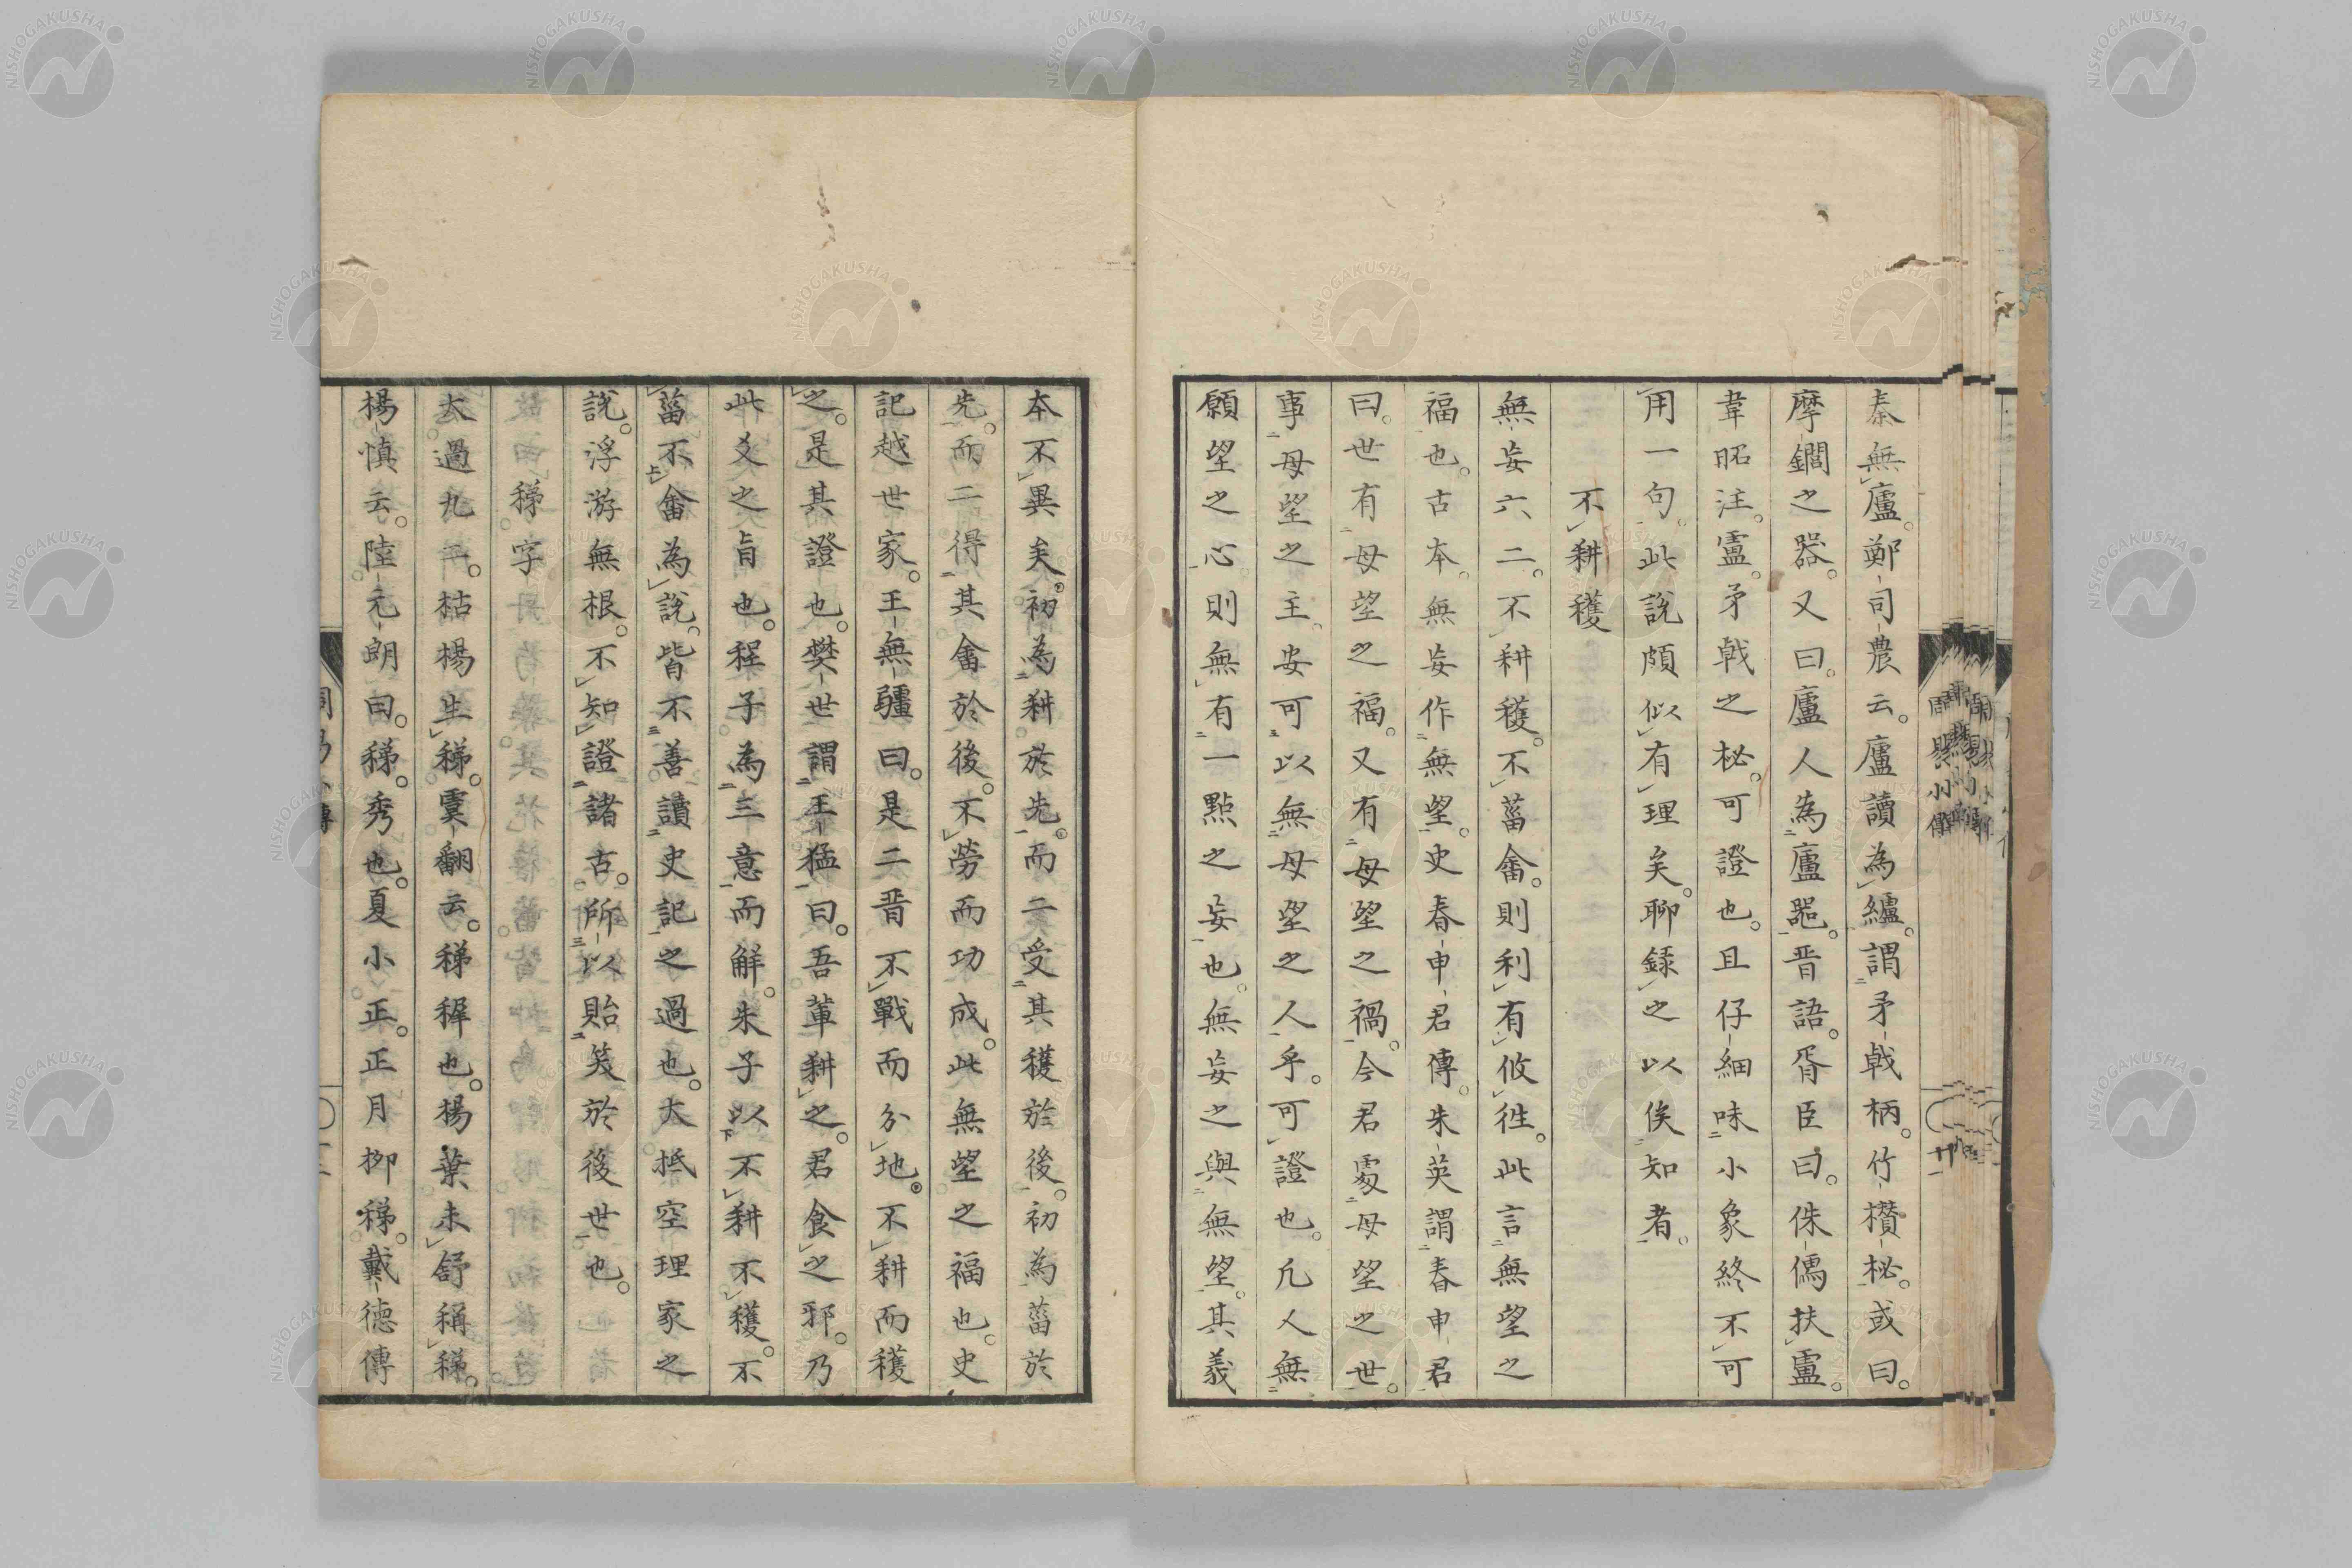 秦無廬。鄭司農云。廬讀為纑。謂矛戟柄。竹欑柲。或曰。
摩鐧之器。又曰。廬人為廬器。晋語。胥臣曰。侏儒扶盧。
韋昭注。盧。矛戟之柲。可證也。且仔細味小象終不可
用一句。此說頗似有理矣。聊錄之以俟知者。
不耕穫
無妄六二。不耕穫。不菑畬。則利有攸往。此言無望之
福也。古本。無妄作無望。史春申君傳。朱英謂春申君
曰。世有毋望之福。又有毋望之禍。今君處毋望之世。
事毋望之主。安可以無毋望之人乎。可證也。凡人無
願望之心。則無有一點之妄也。無妄之與無望。其義
本不異矣。初為耕於先。而二受其穫於後。初為菑於
先。而二得其畬於後。不勞而功成。此無望之福也。史
記越世家。王無彊曰。是二晋不戰而分地。不耕而穫
之。是其證也。樊世謂王猛曰。吾輩耕之。君食之邪。乃
此爻之旨也。程子為三意而解。朱子以不耕不穫。不
菑不畬為說。皆不善讀史記之過也。大抵空理家之
說。浮游無根。不知證諸古。所以貽笑於後世也。
稊字
大過九二。枯楊生稊。虞翻云。稊穉也。楊葉未舒稱稊。
楊慎云。陸元朗曰。稊。秀也。夏小正。正月柳稊。戴德傳